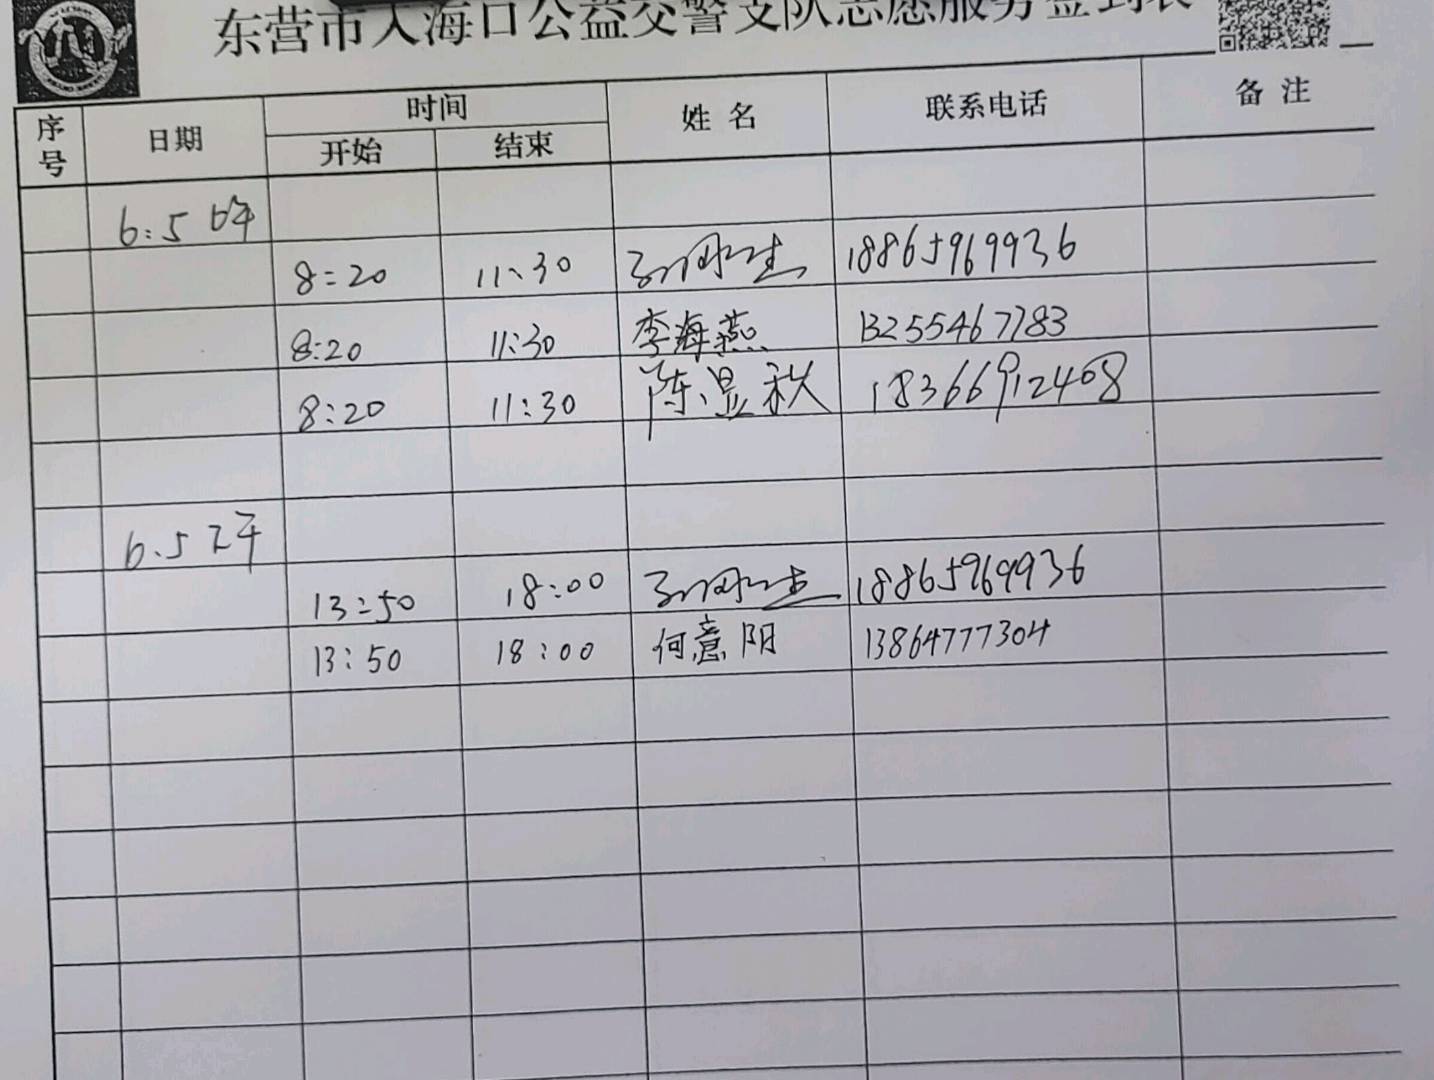 东营市入海口公益交警支队志愿服务签到表
序号 日期 时间 姓名 联系电话 备注
开始 结束
6:5 上午
8:20 11:30 18865969936
8:20 11:30 李海燕 13255467783
8:20 11:30 陈显秋 18366912408
6.5 下午
13:50 18:00 18865969936
13:50 18:00 何意阳 13864777304